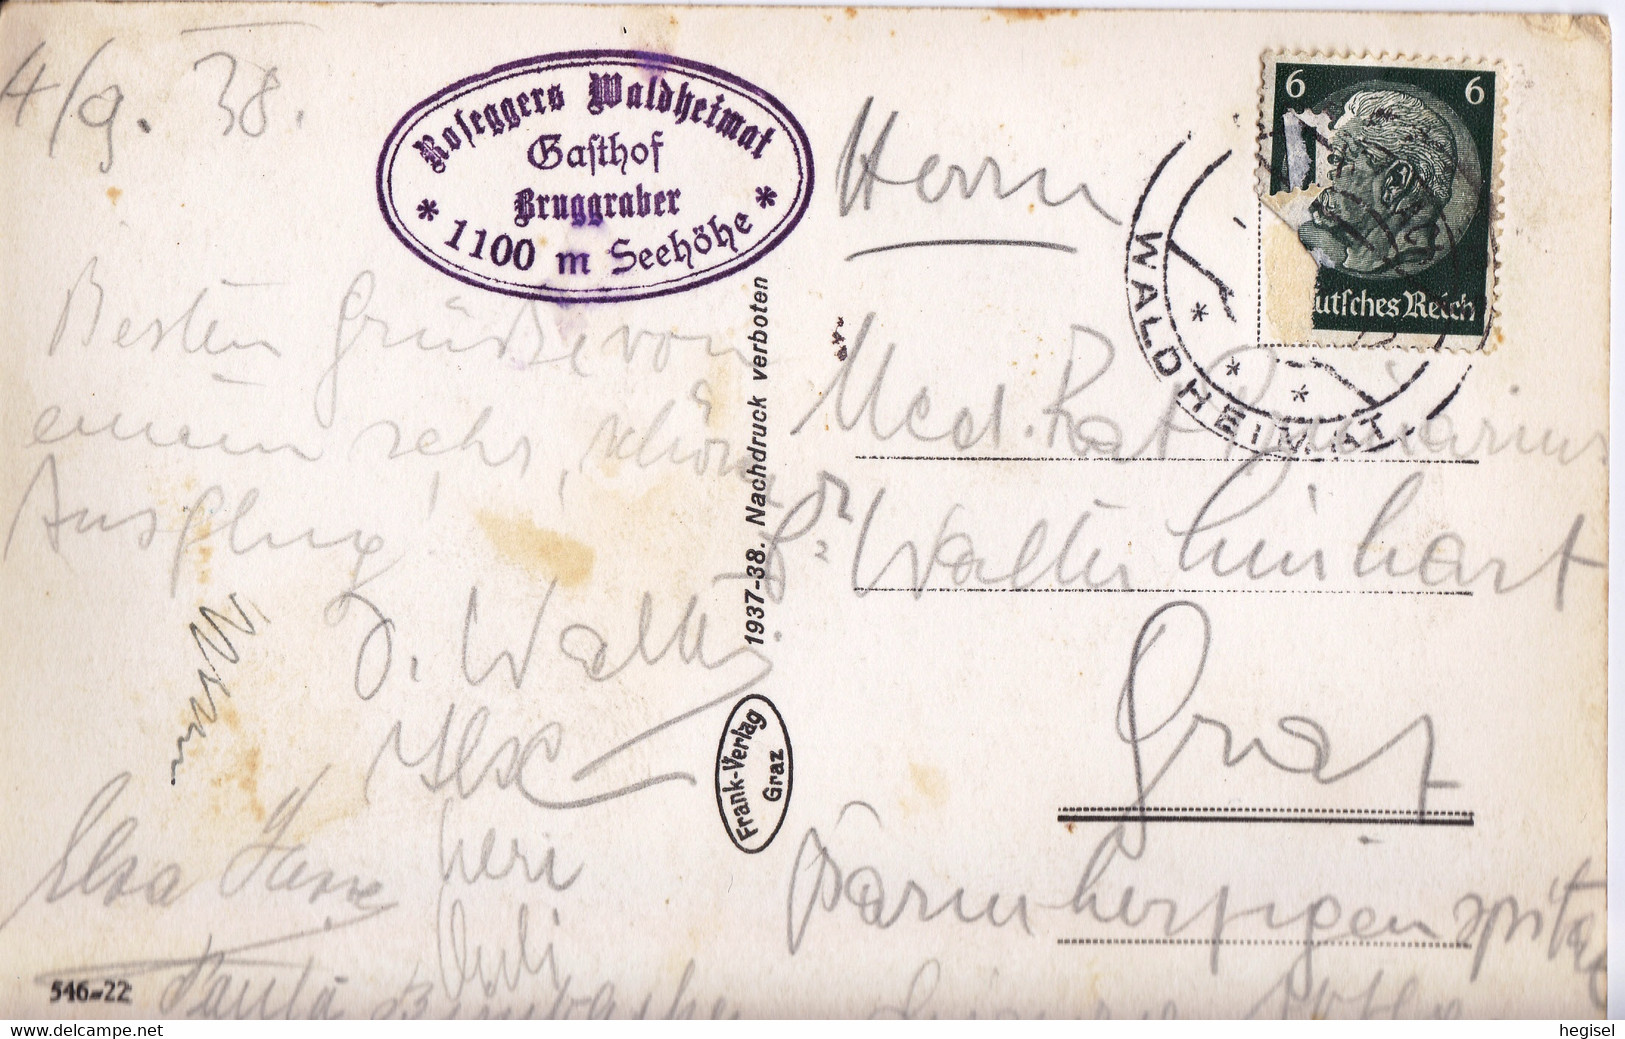 4/9. 38.
Roseggers Waldheimat
Gasthof
Bruggraber
* 1100 m Seehöhe *
Besten Grüße von
einem sehr schönen
Ausflug!
Walter
Ilse
Heri
Elsa
Paula
546-22
1937-38. Nachdruck verboten
Frank-Verlag
Graz
6 6
Deutsches Reich
WALDHEIMAT
Herrn
Med. Rat Primarius
Dr Walter Linhart
Graz
Barmherzigenspital
delcampe.net
hegisel